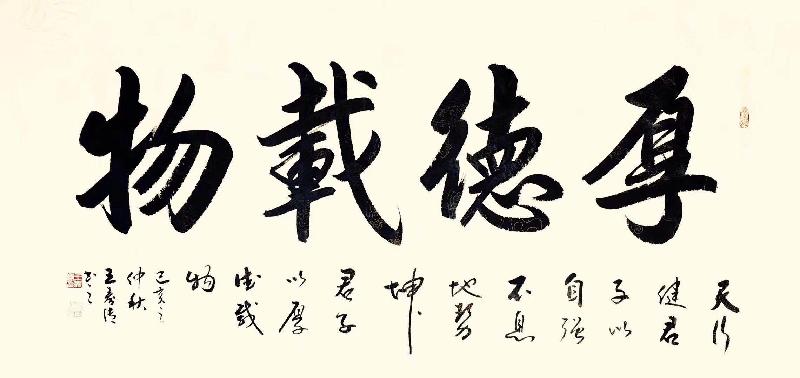 厚德載物
天行
健君
子以
自强
不息
地势
坤
君子
以厚
德载
物
己亥之
仲秋
王
书之